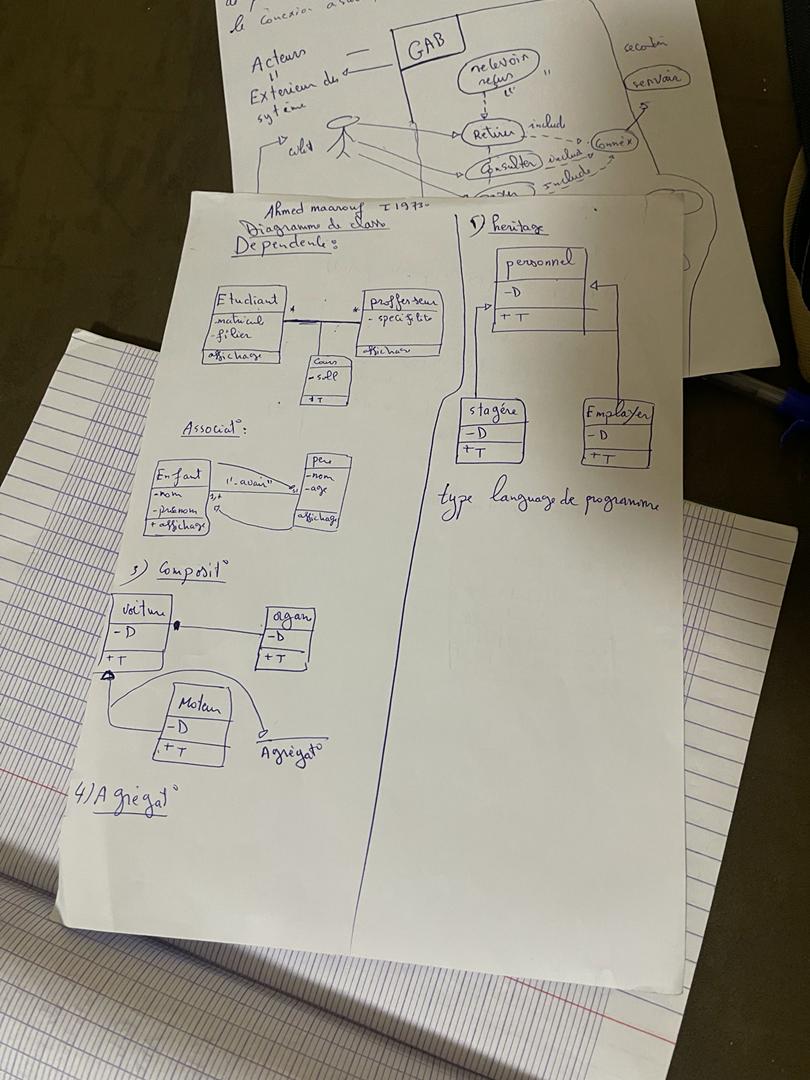 le Conexion
Acteurs
"
Exterieur des
sytéme
GAB
relevoir
refus
"
"
Retirer
includ
Consulter
includ
include
Connex
servair
Ahmed maarouf I1973
Diagramme de class
Dependente:
Etudiant
-matricul
-filier
affichage
*
*
profferseur
- specifilite
affichage
Cours
- sall
+T
Associat°:
Enfant
-nom
-prénom
+ affichage
"-avair"
pere
-nom
-age
affichage
3) Composit°
voiture
-D
+T
organ
-D
+T
Moteur
-D
+T
Agrégat°
4) Agrégat°
5) heritage
personnel
-D
+T
stagére
-D
+T
Employer
-D
+T
type language de programme